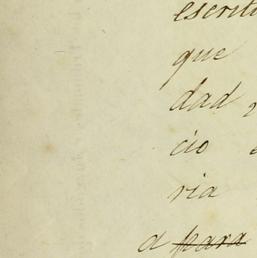 escrit
que
dad
cio
ria
a para